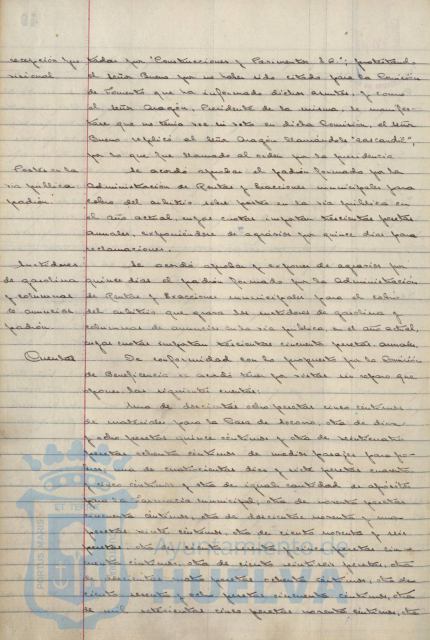 recepción pro- tadas por "Construcciones y Pavimentos S.A."; protestand
visional el Señor Bueno por no haber sido citado para la Comisión
de Fomento que ha informado dichos asuntos, y como
el Señor Aragón, Presidente de la misma, le manifes-
tase que no tenía voz ni voto en dicha Comisión, el Señor
Bueno replicó al Señor Aragón llamándole
por lo que fue llamado al orden por la presidencia
Postes en la Se acordó aprobar el padrón formado por la
vía pública Administración de Rentas y Exacciones municipales para
padrón. cobro del arbitrio sobre postes en la vía pública en
el año actual, cuyas cuotas importan trescientas pesetas
anuales, exponiéndose de agravios por quince días para
reclamaciones.
Surtidores Se acordó aprobar y exponer de agravios por
de gasolina quince días el padrón formado por la Administración
y columnas de Rentas y Exacciones municipales para el cobro
de anuncios del arbitrio que grava los surtidores de gasolina y
padrón columnas de anuncios en la vía pública, en el año actual,
cuyas cuotas importan trescientas cincuenta pesetas, anuales.
Cuentas De conformidad con lo propuesto por la Comisión
de Beneficencia se acordó
oponer, las siguientes cuentas:
Una de doscientas ocho pesetas cinco céntimos
de materiales para la Casa de Socorro, otra de diez
y ocho pesetas quince céntimos y otra de veinticuatro
pesetas ochenta céntimos de medios pasajes para po-
bres; una de cuatrocientas diez y siete pesetas cuarenta
y cinco céntimos y otra de igual cantidad de
para la Farmacia municipal, otra de noventa pesetas
cincuenta céntimos, otra de doscientas noventa y una
pesetas veinte céntimos, otra de ciento noventa y seis
pesetas, otra de pesetas cin-
cuenta céntimos, otra de ciento veintiséis pesetas, otra
de doscientas pesetas ochenta céntimos, otra de
ciento sesenta y ocho pesetas cincuenta céntimos, otra
de mil setecientas cinco pesetas noventa céntimos, otra
Ayuntamiento de
HUELVA
PORTUS MARIS ET TERRAE